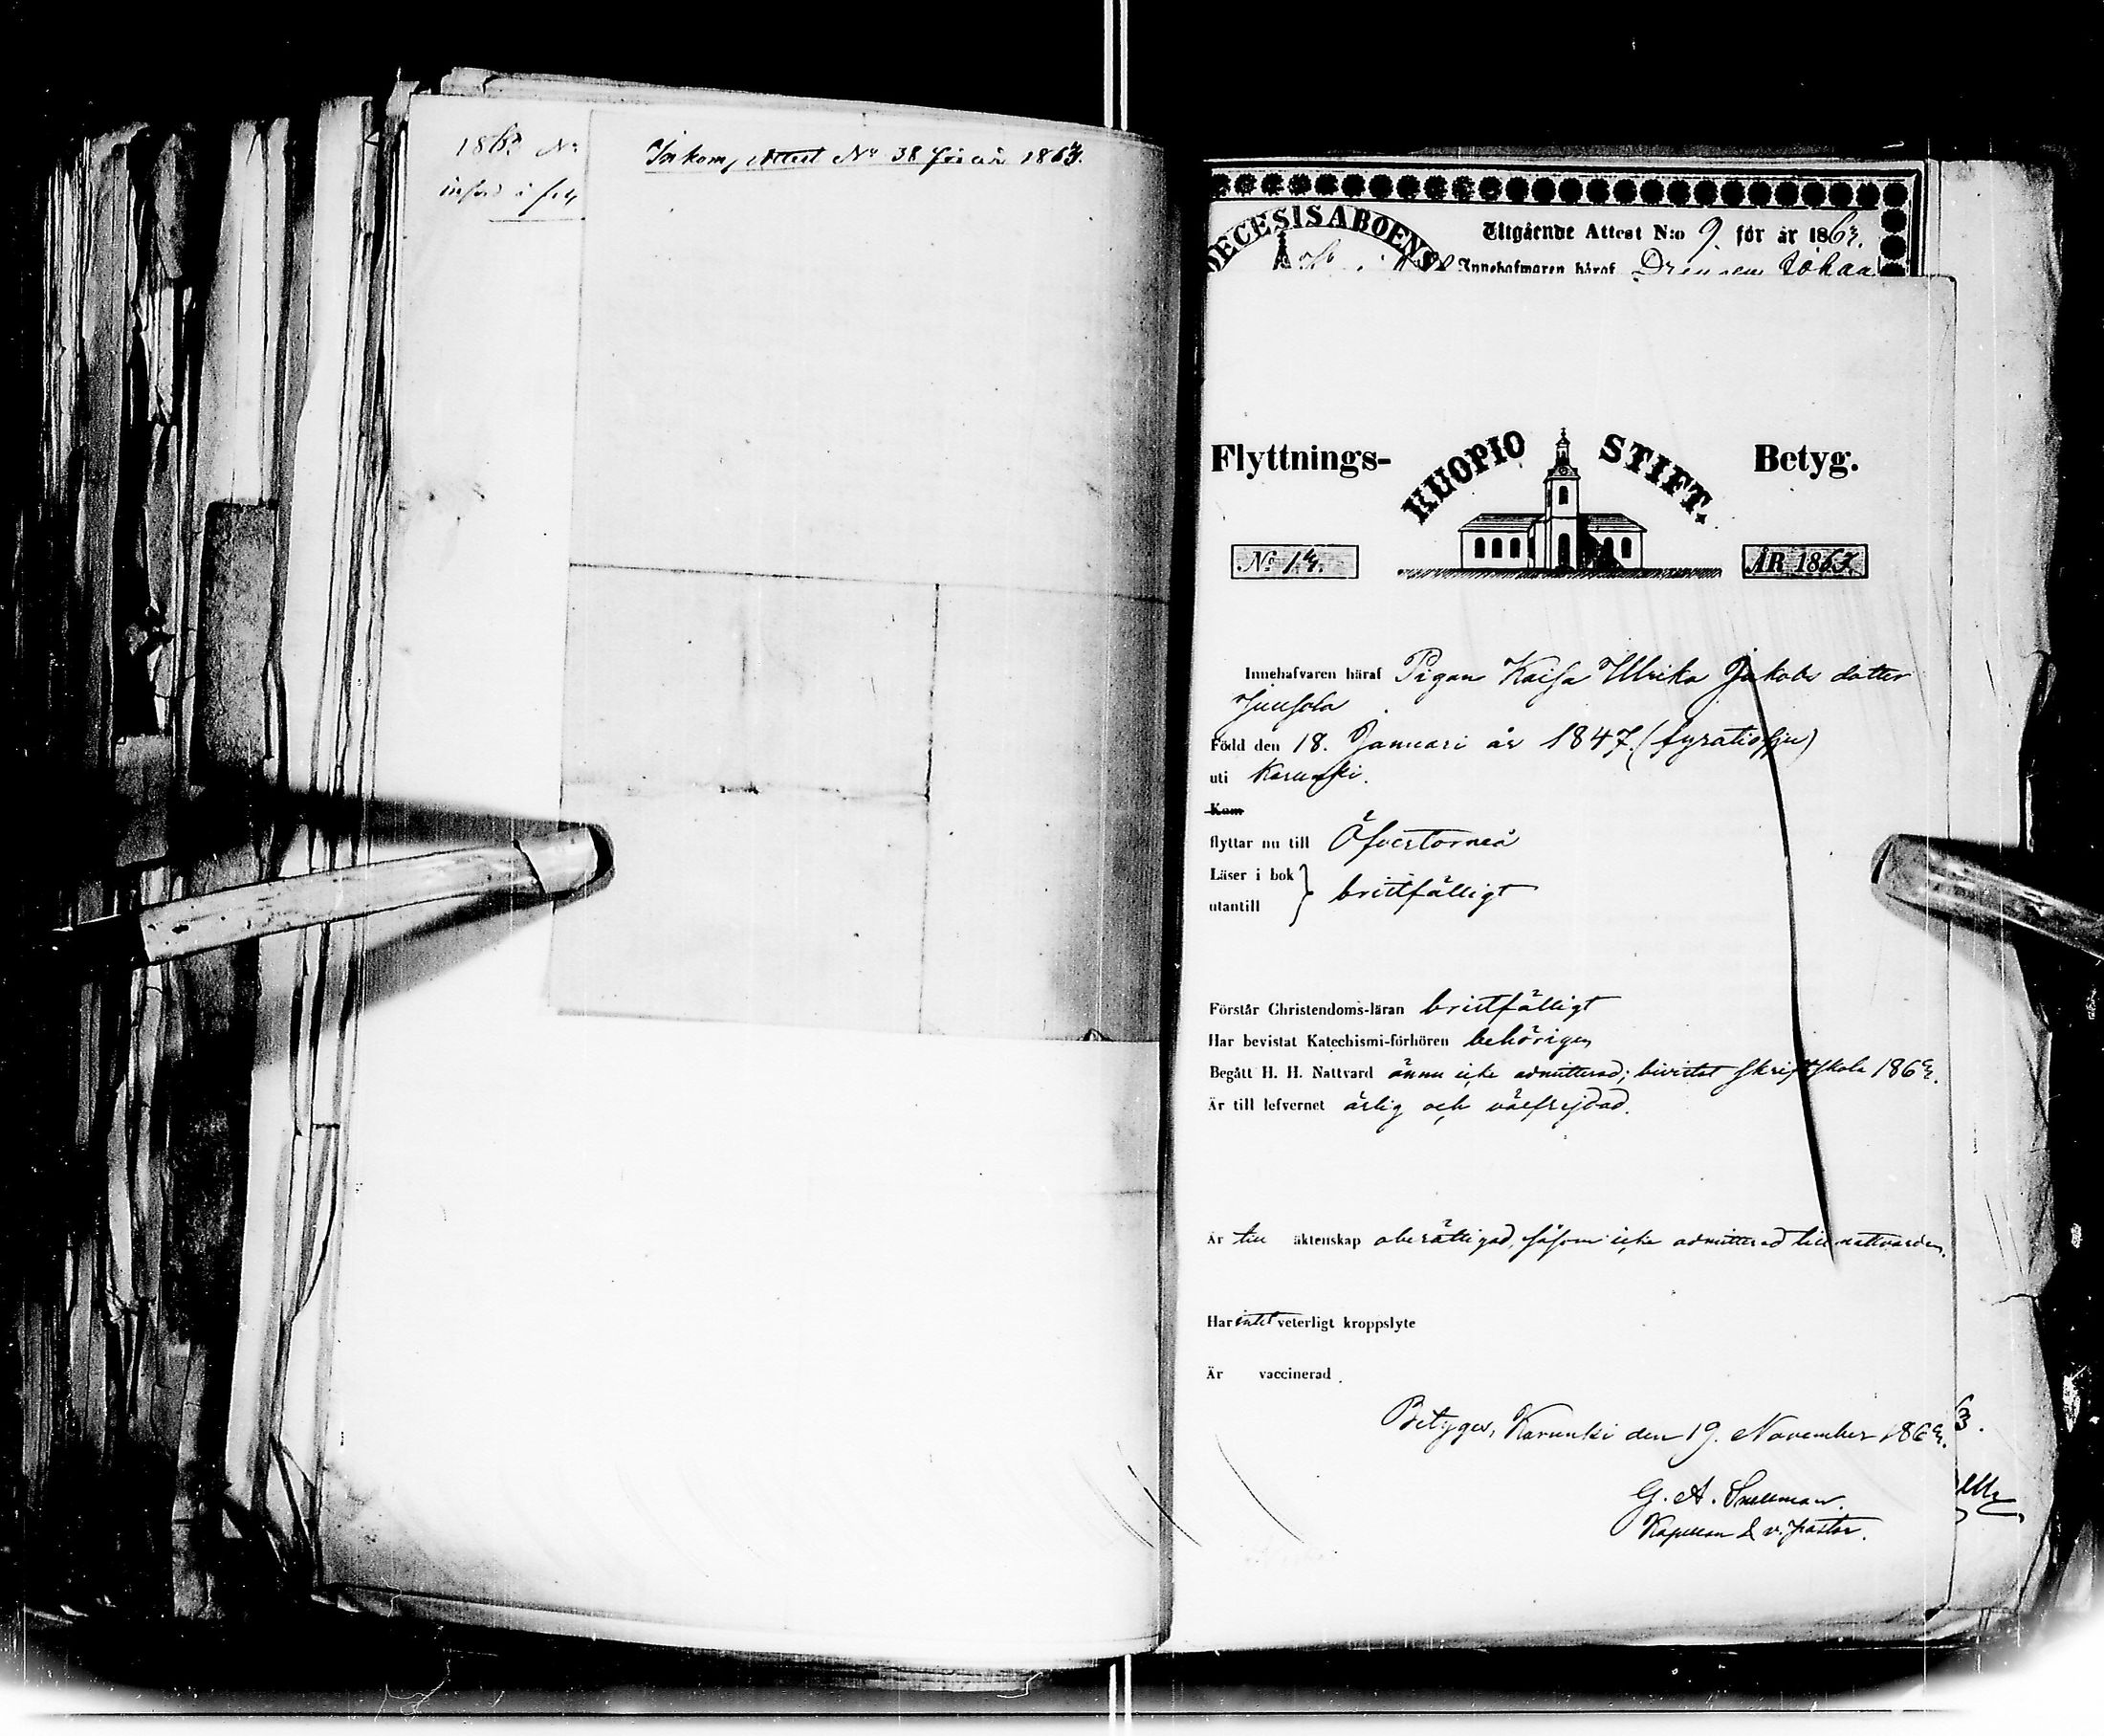 1863 No
införd å fol.
Inkom, Attest No 38 för år 1863.
DECESIS ABOENS
Utgående Attest N:o 9. för år 1863.
Innehafwaren häraf Drengen Johan
Flyttnings- KUOPIO STIFT. Betyg.
No 14. ÅR 1863.
Innehafvaren häraf Pigan Kaisa Ulrika Jakobs dotter
Juusola
Född den 18. Januari år 1847. (fyratiosju)
uti Karunki.
Kom
flyttar nu till Öfvertorneå
Läser i bok
utantill } bristfälligt
Förstår Christendoms-läran bristfälligt
Har bevistat Katechismi-förhören behörigen
Begått H. H. Nattvard ännu icke admitterad; bivistat skriftskola 1863.
Är till lefvernet ärlig och välfrejdad.
Är till äktenskap oberättigad, såsom icke admitterad till nattvarden.
Har intet veterligt kroppslyte
Är vaccinerad.
Betygas, Karunki den 19. November 1863.
3.
G. A. Snellman.
Kapellan & v. pastor.